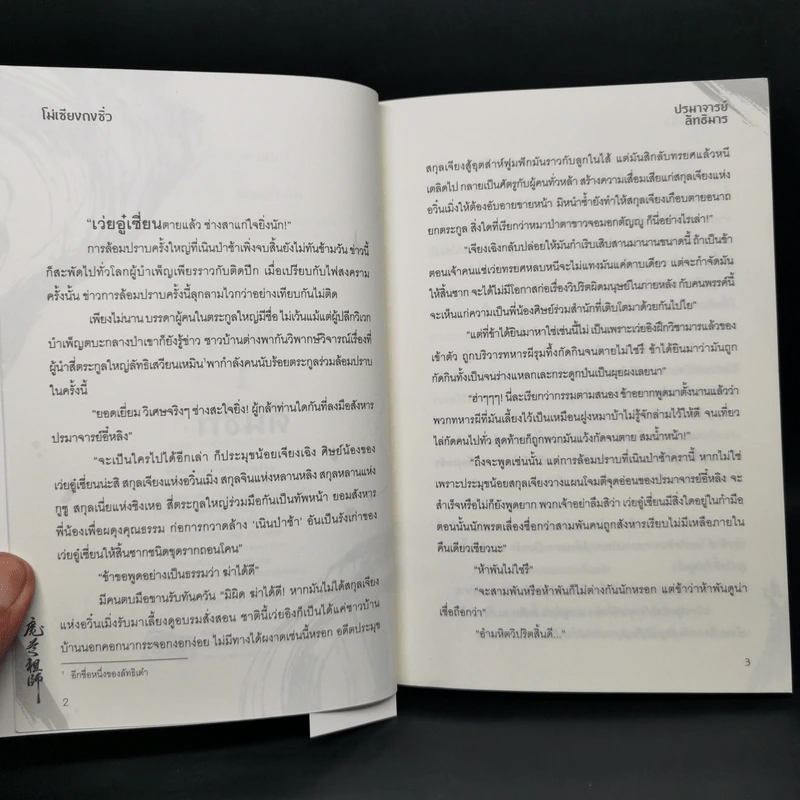 โม่เซียงถงซิ่ว
"เว่ยอู๋เซี่ยนตายแล้ว ช่างสาแก่ใจยิ่งนัก!"
การล้อมปราบครั้งใหญ่ที่เนินป่าช้าเพิ่งจบสิ้นยังไม่ทันข้ามวัน ข่าวนี้
ก็สะพัดไปทั่วโลกผู้บำเพ็ญเพียรราวกับติดปีก เมื่อเปรียบกับไฟสงคราม
ครั้งนั้น ข่าวการล้อมปราบครั้งนี้ลุกลามไวกว่าอย่างเทียบกันไม่ติด
เพียงไม่นาน บรรดาผู้คนในตระกูลใหญ่มีชื่อ ไม่เว้นแม้แต่ผู้ปลีกวิเวก
บำเพ็ญตบะกลางป่าเขาก็ยังรู้ข่าว ชาวบ้านต่างพากันวิพากษ์วิจารณ์เรื่องที่
ผู้นำสี่ตระกูลใหญ่ลัทธิเสวียนเหมิน¹พากำลังคนนับร้อยตระกูลร่วมล้อมปราบ
ในครั้งนี้
"ยอดเยี่ยม วิเศษจริงๆ ช่างสะใจยิ่ง! ผู้กล้าท่านใดกันที่ลงมือสังหาร
ปรมาจารย์อี๋หลิง"
"จะเป็นใครไปได้อีกเล่า ก็ประมุขน้อยเจียงเฉิง ศิษย์น้องของ
เว่ยอู๋เซี่ยนน่ะสิ สกุลเจียงแห่งอวิ๋นเมิ่ง สกุลจินแห่งหลานหลิง สกุลหลานแห่ง
กูซู สกุลเนี่ยแห่งชิงเหอ สี่ตระกูลใหญ่ร่วมมือกันเป็นทัพหน้า ยอมสังหาร
พี่น้องเพื่อผดุงคุณธรรม ก่อการกวาดล้าง 'เนินป่าช้า' อันเป็นรังเก่าของ
เว่ยอู๋เซี่ยนให้สิ้นซากชนิดขุดรากถอนโคน"
"ข้าขอพูดอย่างเป็นธรรมว่า ฆ่าได้ดี"
มีคนตบมือขานรับทันควัน "มิผิด ฆ่าได้ดี! หากมันไม่ได้สกุลเจียง
แห่งอวิ๋นเมิ่งรับมาเลี้ยงดูอบรมสั่งสอน ชาตินี้เว่ยอิงก็เป็นได้แค่ชาวบ้าน
บ้านนอกคอกนากระจอกงอกง่อย ไม่มีทางได้ผงาดเช่นนี้หรอก อดีตประมุข
¹ อีกชื่อหนึ่งของลัทธิเต๋า
2
ปรมาจารย์
ลัทธิมาร
สกุลเจียงสู้อุตส่าห์ฟูมฟักมันราวกับลูกในไส้ แต่มันสิกลับทรยศแล้วหนี
เตลิดไป กลายเป็นศัตรูกับผู้คนทั่วหล้า สร้างความเสื่อมเสียแก่สกุลเจียงแห่ง
อวิ๋นเมิ่งให้ต้องอับอายขายหน้า มิหนำซ้ำยังทำให้สกุลเจียงเกือบตายอนาถ
ยกตระกูล สิ่งใดที่เรียกว่าหมาป่าตาขาวจอมอกตัญญู ก็นี่อย่างไรเล่า!"
"เจียงเฉิงกลับปล่อยให้มันกำเริบเสิบสานมานานขนาดนี้ ถ้าเป็นข้า
ตอนเจ้าคนแซ่เว่ยทรยศหลบหนีจะไม่แทงมันแค่ดาบเดียว แต่จะกำจัดมัน
ให้สิ้นซาก จะได้ไม่มีโอกาสก่อเรื่องวิปริตผิดมนุษย์ในภายหลัง กับคนพรรค์นี้
จะเห็นแก่ความเป็นพี่น้องศิษย์ร่วมสำนักที่เติบโตมาด้วยกันไปใย"
"แต่ที่ข้าได้ยินมาหาใช่เช่นนี้ไม่ เป็นเพราะเว่ยอิงฝึกวิชามารแล้วของ
เข้าตัว ถูกบริวารทหารผีรุมทึ้งกัดกินจนตายไม่ใช่รึ ข้าได้ยินมาว่ามันถูก
กัดกินทั้งเป็นจนร่างแหลกเละกระดูกป่นเป็นผุยผงเลยนา"
"ฮ่าๆๆๆ! นี่ละเรียกว่ากรรมตามสนอง ข้าอยากพูดมาตั้งนานแล้วว่า
พวกทหารผีที่มันเลี้ยงไว้เป็นเหมือนฝูงหมาบ้าไม่รู้จักล่ามไว้ให้ดี จนเที่ยว
ไล่กัดคนไปทั่ว สุดท้ายก็ถูกพวกมันแว้งกัดจนตาย สมน้ำหน้า!"
"ถึงจะพูดเช่นนั้น แต่การล้อมปราบที่เนินป่าช้าครานี้ หากไม่ใช่
เพราะประมุขน้อยสกุลเจียงวางแผนโจมตีจุดอ่อนของปรมาจารย์อี๋หลิง จะ
สำเร็จหรือไม่ก็ยังพูดยาก พวกเจ้าอย่าลืมสิว่า เว่ยอู๋เซี่ยนมีสิ่งใดอยู่ในกำมือ
ตอนนั้นนักพรตเลื่องชื่อกว่าสามพันคนถูกสังหารเรียบไม่มีเหลือภายใน
คืนเดียวเชียวนะ"
"ห้าพันไม่ใช่รึ"
"จะสามพันหรือห้าพันก็ไม่ต่างกันนักหรอก แต่ข้าว่าห้าพันดูน่า
เชื่อถือกว่า"
"อำมหิตวิปริตสิ้นดี..."
3